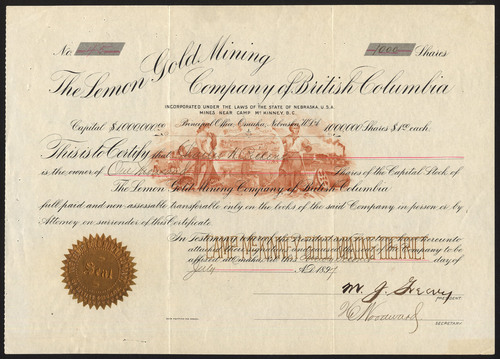 No. 45 1000 Shares
The Lemon Gold Mining
Company of British Columbia
INCORPORATED UNDER THE LAWS OF THE STATE OF NEBRASKA, U.S.A.
MINES NEAR CAMP McKINNEY, B.C.
Capital $1,000,000.00 Principal Office, Omaha, Nebraska, U.S.A. 1000000 Shares $1.00 each.
This is to Certify that
is the owner of One Thousand Shares of the Capital Stock of
The Lemon Gold Mining Company of British Columbia
full paid and non-assessable transferable only on the books of the said Company in person or by
Attorney on surrender of this Certificate.
In Testimony whereof the President and hereunto
attached their signatures and Company to be
affixed at Omaha, Neb. this day of
July A.D. 1897
Seal
PRESIDENT.
SECRETARY.